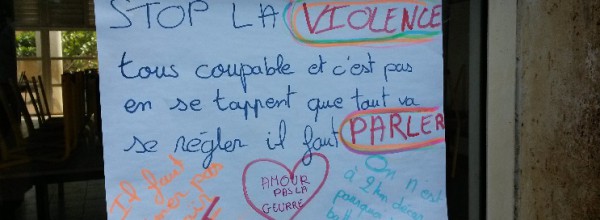 STOP LA VIOLENCE
tous coupable et c'est pas
en se tappent que tout va
se régler il faut PARLER
AMOUR
PAS LA
GEURRE
Il faut
pas
On n'est
à 2 km
pourquoi